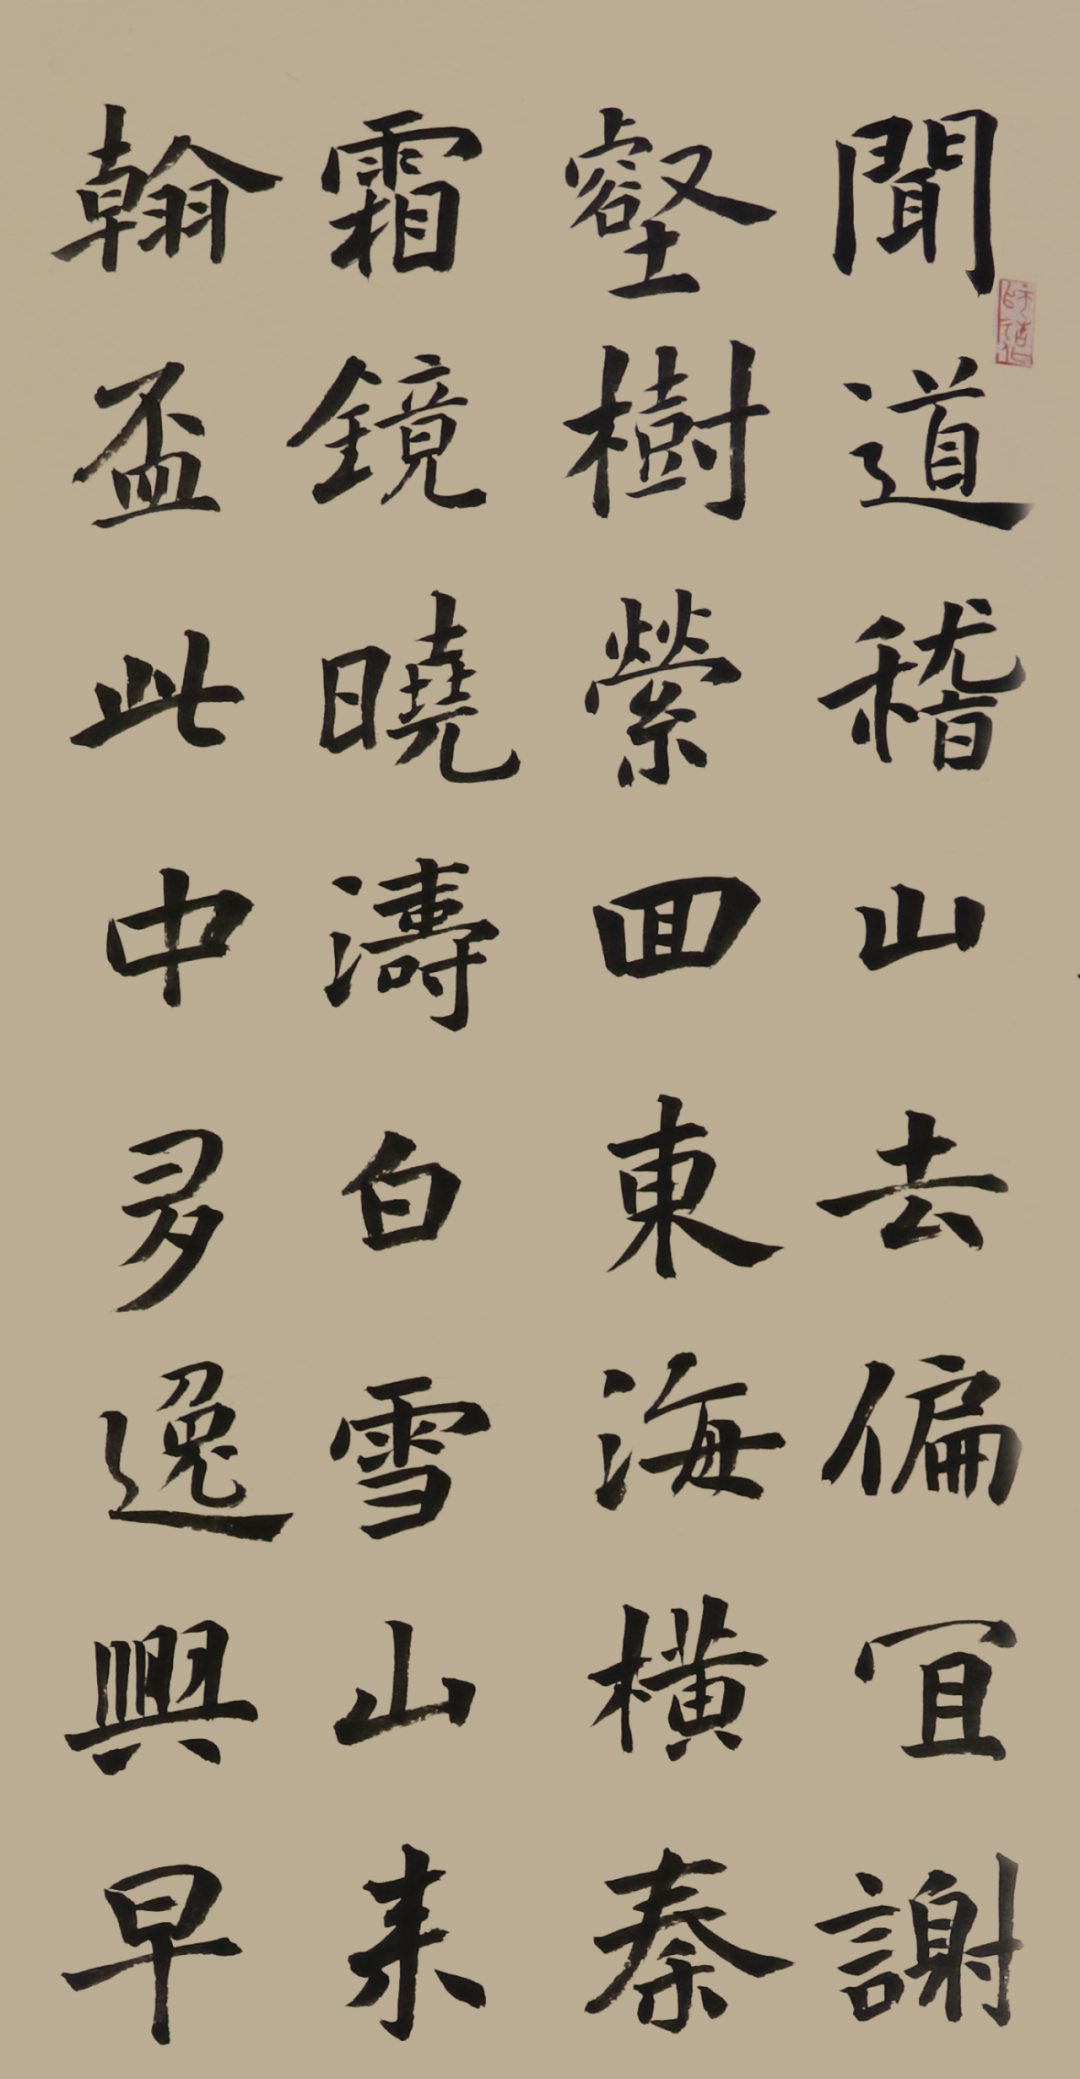 聞道稽山去偏冝謝
壑樹縈囬東海横秦
霜鏡曉濤白雪山来
翰盃此中多逸興早